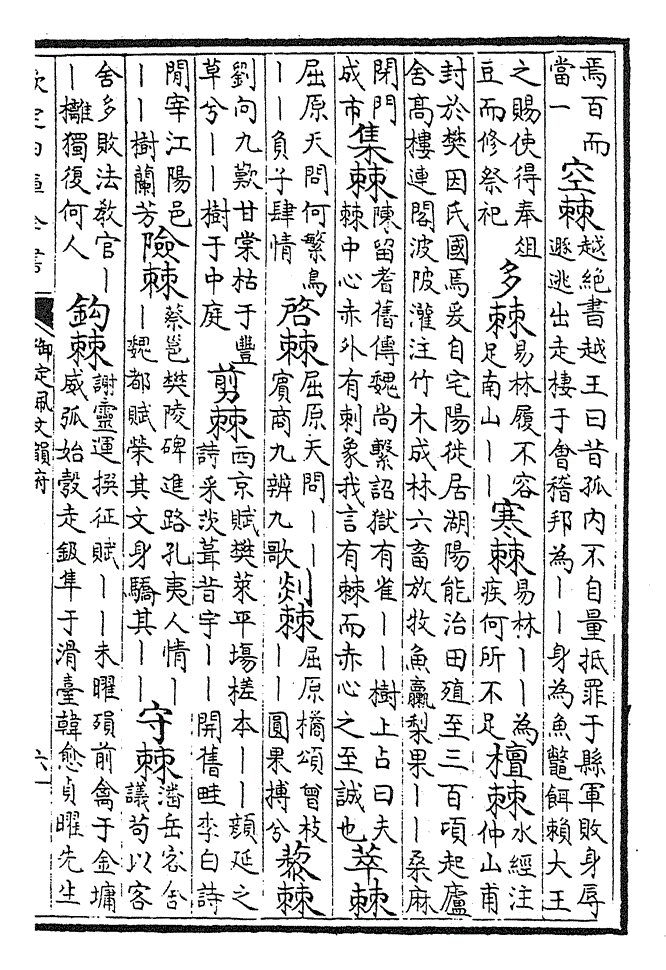 焉百而
當一
空棘
越絶書越王曰昔孤内不自量抵罪于縣軍敗身辱
遯逃出走棲于㑹稽邦為丨丨身為魚鼈餌賴大王
之賜使得奉俎
豆而修祭祀
多棘
易林履不容
足南山丨丨
寒棘
易林丨丨為
疾何所不足
檀棘
水經注
仲山甫
封於樊因氏國焉爰自宅陽徙居湖陽能治田殖至三百頃起廬
舍髙樓連閣波陂灌注竹木成林六畜放牧魚蠃梨果丨丨桑麻
閉門
成市
集棘
陳留耆舊傳魏尚繫詔獄有雀丨丨樹上占曰夫
棘中心赤外有刺象我言有棘而赤心之至誠也
萃棘
屈原天問何繁鳥
丨丨負子肆情
啓棘
屈原天問丨丨
賓商九辨九歌
剡棘
屈原橘頌曾枝
丨丨圓果摶兮
藜棘
劉向九歎甘棠枯于豐
草兮丨丨樹于中庭
剪棘
西京賦樊萊平塲槎本丨丨顔延之
詩采茨葺昔宇丨丨開舊畦李白詩
閒宰江陽邑
丨丨樹蘭芳
險棘
蔡邕樊陵碑進路孔夷人情丨
丨魏都賦榮其文身驕其丨丨
守棘
潘岳客舍
議苟以客
舍多敗法敎官丨
丨檅獨復何人
鈎棘
謝靈運撰征賦丨丨未曜殞前禽于金墉
威弧始彀走鈒隼于滑臺韓愈貞曜先生
欽定四庫全書
御定佩文韻府
六一